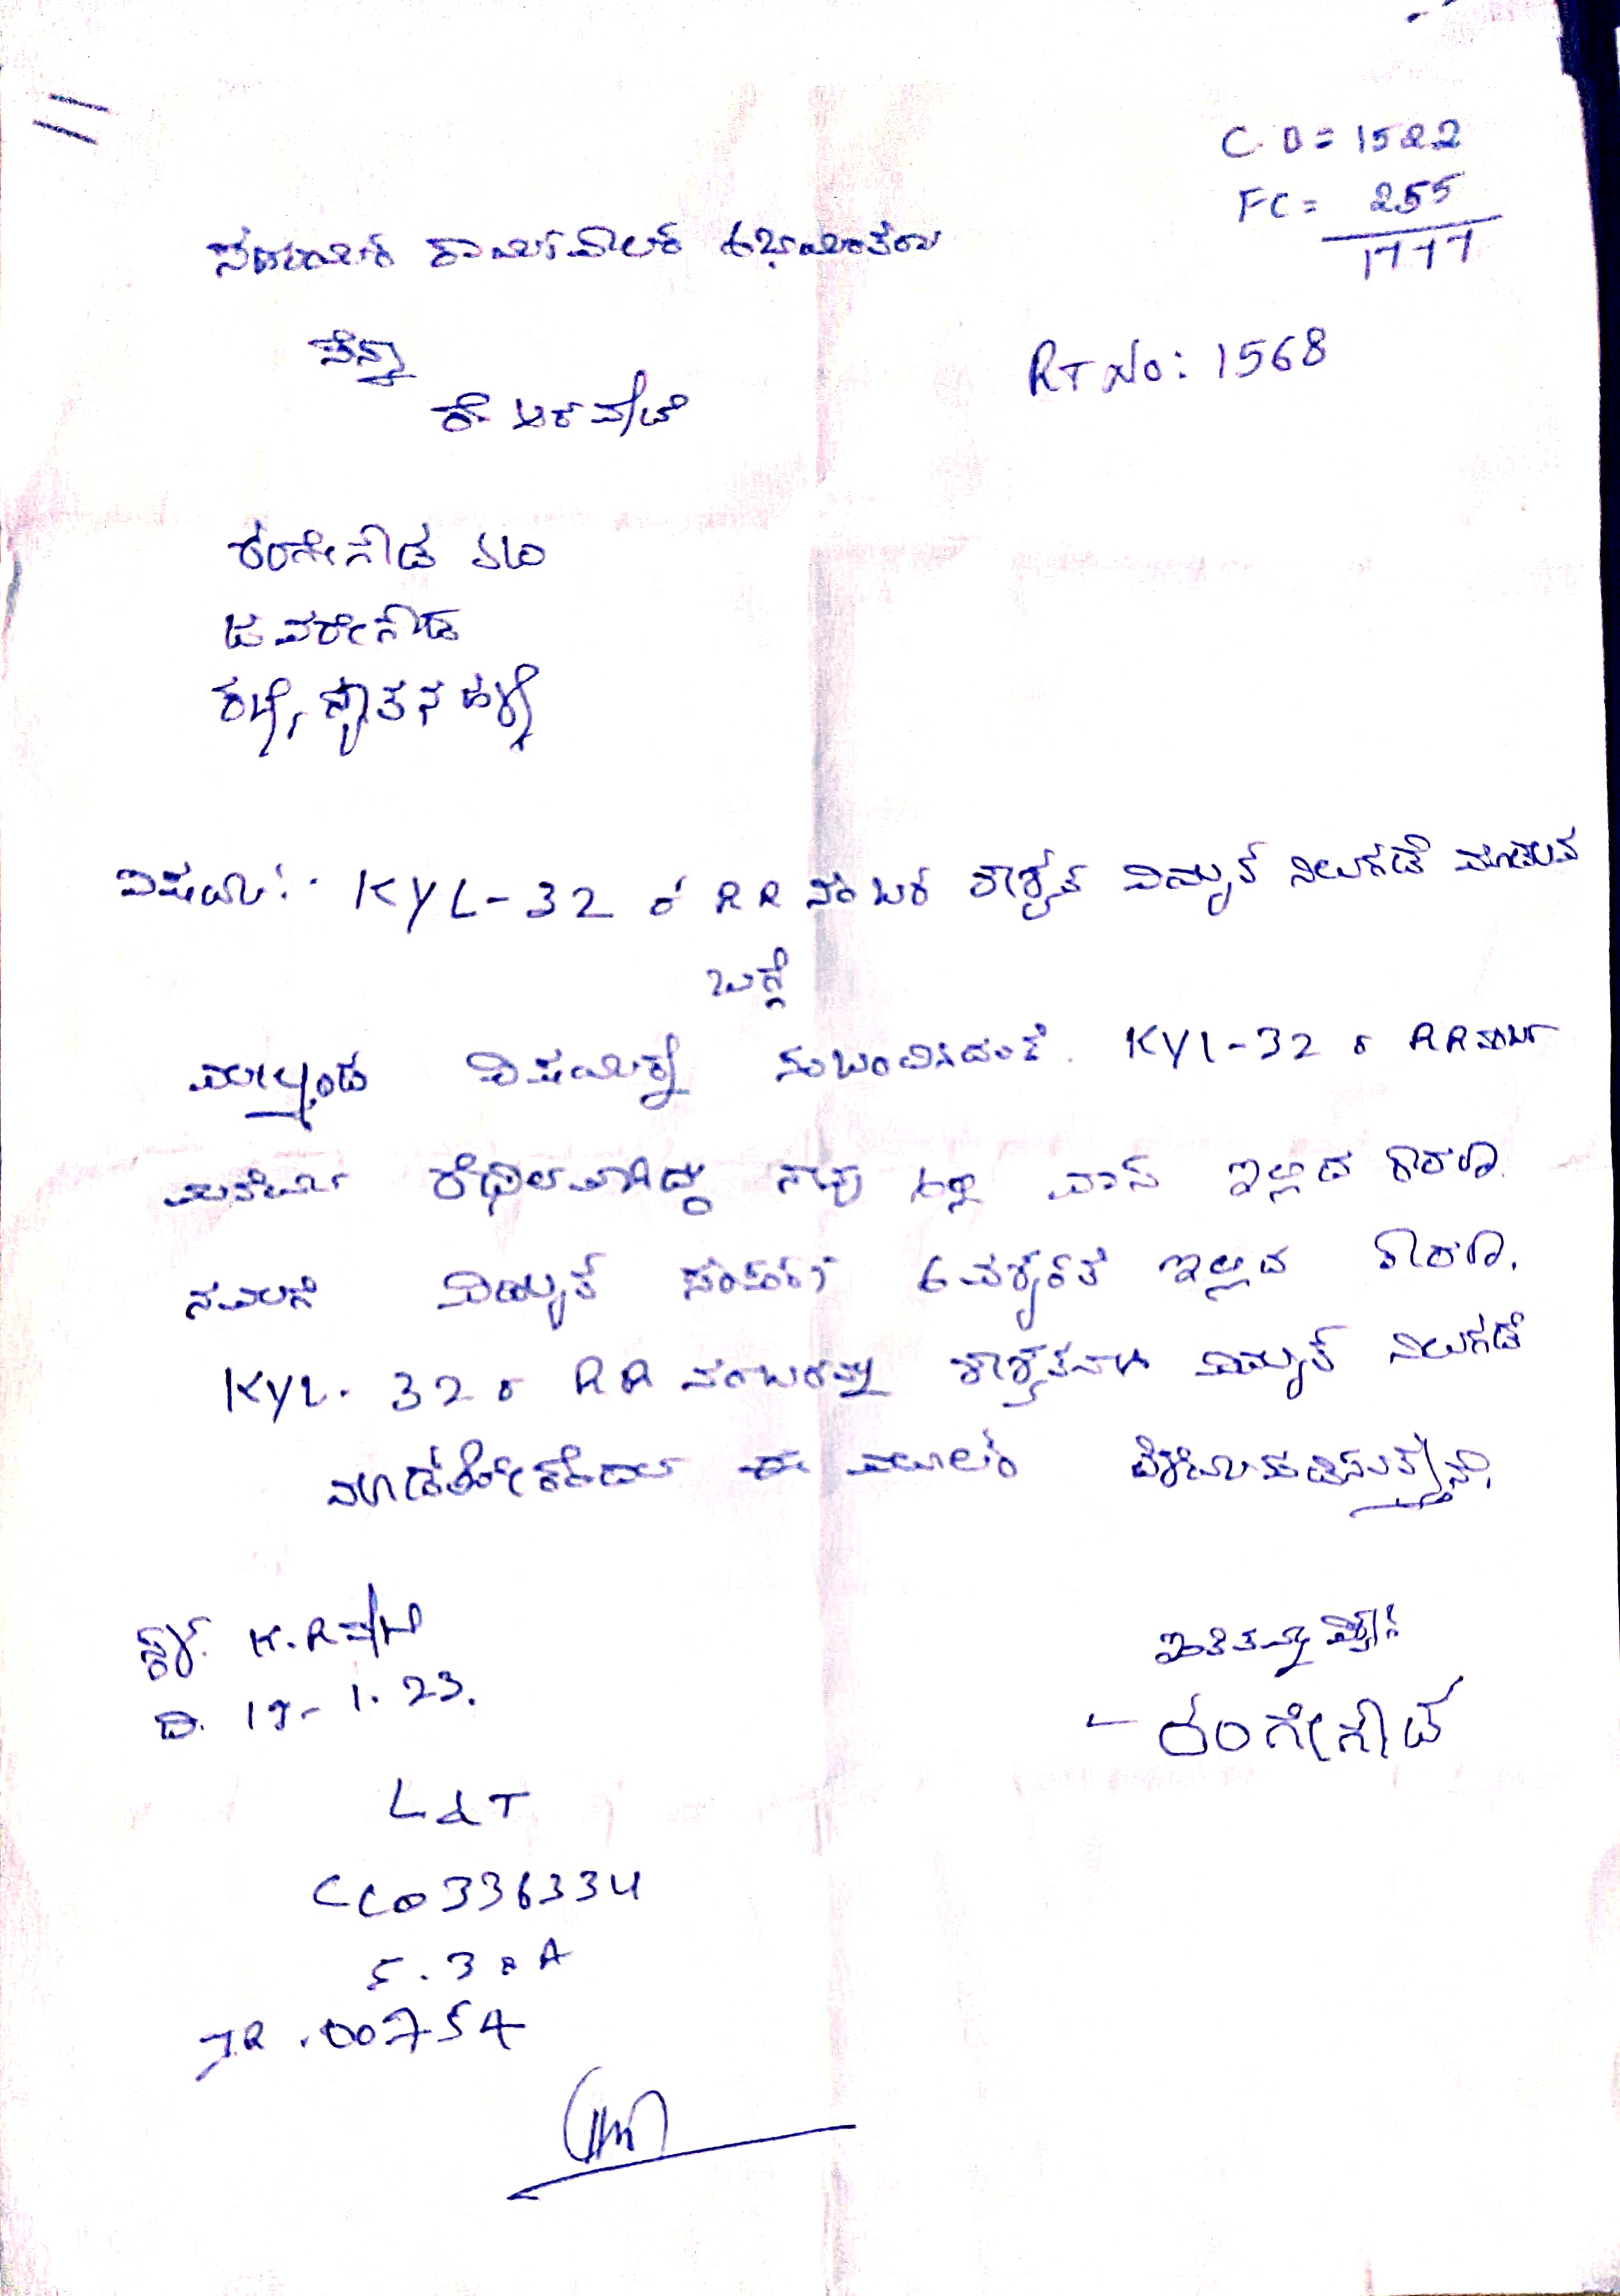 C.B = 1522
FC = 255
1777
ಸಹಾಯಕ ಕಾರ್ಯಪಾಲಕ ಅಭಿಯಂತರು
RT No: 1568
ಕೆ ಆರ ಪೇಟೆ
ರಂಗೇಗೌಡ ಬಿನ
ಜವರೇಗೌಡ
ಕಟ್ಟೆ ಕ್ಯಾತನ ಹಳ್ಳಿ
ವಿಷಯ:- KYL-32 ರ RR ನಂಬರ ಶಾಶ್ವತ ವಿದ್ಯುತ್ ನಿಲುಗಡೆ ಮಾಡುವ
ಬಗ್ಗೆ
ಮೇಲ್ಕಂಡ ವಿಷಯಕ್ಕೆ ಸಂಬಂದಿಸಿದಂತೆ. KYL-32 ರ RR ನಂಬರ್
ಮನೆಯು ಶಿಥಿಲವಾಗಿದ್ದು ನಾವು ಅಲ್ಲಿ ವಾಸ ಇಲ್ಲದ ಕಾರಣ.
ನಮಗೆ ವಿದ್ಯುತ್ ಸಂಪರ್ಕ ಅವಶ್ಯಕತೆ ಇಲ್ಲದ ಕಾರಣ.
KYL. 32 ರ RR ನಂಬರನ್ನು ಶಾಶ್ವತವಾಗಿ ವಿದ್ಯುತ್ ನಿಲುಗಡೆ
ಮಾಡಬೇಕೆಂದು ಈ ಮೂಲಕ ತಿಳಿಯಪಡಿಸುತ್ತೇನೆ.
ಸ್ಥಳ. K.R ಪೇಟೆ
ದಿ. 19-1.23.
ಇಂತಿ ತಮ್ಮ ವಿಶ್ವಾಸಿ
- ರಂಗೇಗೌಡ
L&T
CC0336334
5.30A
JR.00754